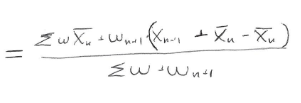 = \frac{\sum w \bar{x}_n + w_{n+1} \cdot (x_{n+1} + \bar{x}_n - \bar{x}_n)}{\sum w + w_{n+1}}